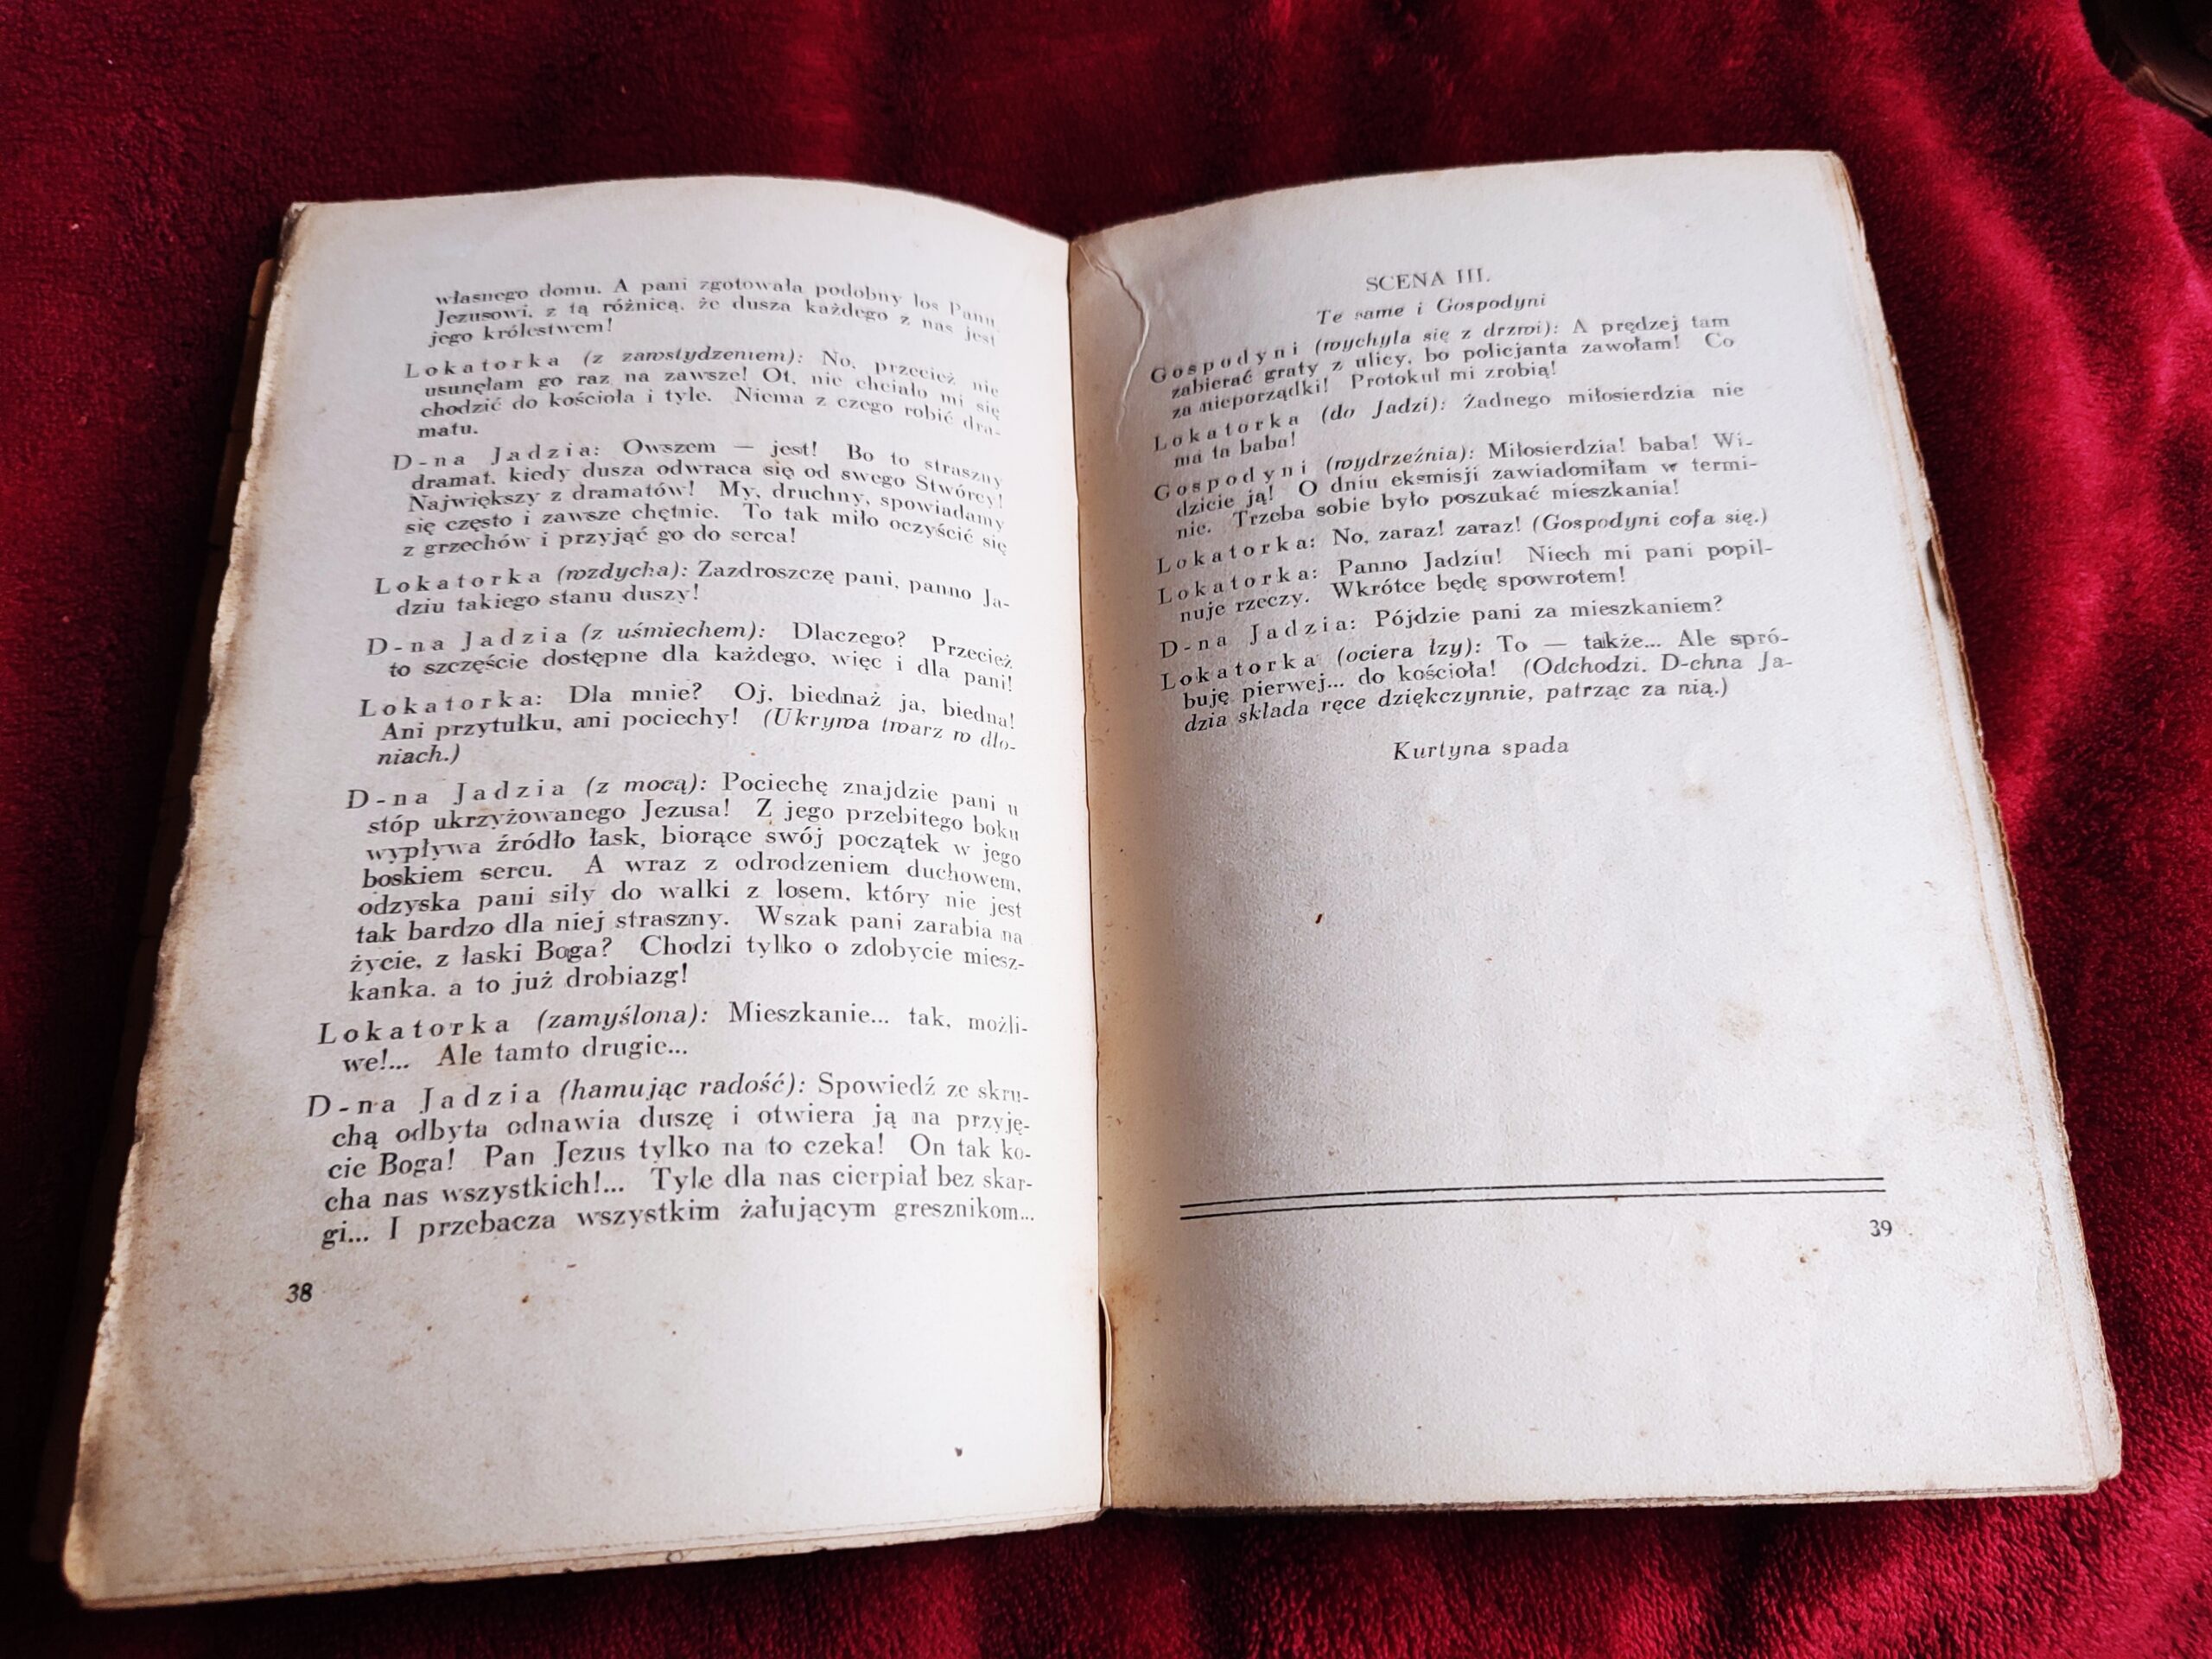 własnego domu. A pani zgotowała podobny los Panu
Jezusowi, z tą różnicą, że dusza każdego z nas jest
jego królestwem!
Lokatorka (z zawstydzeniem): No, przecież nie
usunęłam go raz na zawsze! Ot, nie chciało mi się
chodzić do kościoła i tyle. Niema z czego robić dra-
matu.
D-na Jadzia: Owszem — jest! Bo to straszny
dramat, kiedy dusza odwraca się od swego Stwórcy!
Największy z dramatów! My, druchny, spowiadamy
się często i zawsze chętnie. To tak miło oczyścić się
z grzechów i przyjąć go do serca!
Lokatorka (wzdycha): Zazdroszczę pani, panno Ja-
dziu takiego stanu duszy!
D-na Jadzia (z uśmiechem): Dlaczego? Przecież
to szczęście dostępne dla każdego, więc i dla pani!
Lokatorka: Dla mnie? Oj, biednaż ja, biedna!
Ani przytułku, ani pociechy! (Ukrywa twarz w dło-
niach.)
D-na Jadzia (z mocą): Pociechę znajdzie pani u
stóp ukrzyżowanego Jezusa! Z jego przebitego boku
wypływa źródło łask, biorące swój początek w jego
boskiem sercu. A wraz z odrodzeniem duchowem,
odzyska pani siły do walki z losem, który nie jest
tak bardzo dla niej straszny. Wszak pani zarabia na
życie, z łaski Boga? Chodzi tylko o zdobycie miesz-
kanka, a to już drobiazg!
Lokatorka (zamyślona): Mieszkanie... tak, możli-
we!... Ale tamto drugie...
D-na Jadzia (hamując radość): Spowiedź ze skru-
chą odbyta odnawia duszę i otwiera ją na przyję-
cie Boga! Pan Jezus tylko na to czeka! On tak ko-
cha nas wszystkich!... Tyle dla nas cierpiał bez skar-
gi... I przebacza wszystkim żałującym gresznikom...
38
SCENA III.
Te same i Gospodyni
Gospodyni (wychyla się z drzwi): A prędzej tam
zabierać graty z ulicy, bo policjanta zawołam! Co
za nieporządki! Protokuł mi zrobią!
Lokatorka (do Jadzi): Żadnego miłosierdzia nie
ma ta baba!
Gospodyni (wydrzeźnia): Miłosierdzia! baba! Wi-
dzicie ją! O dniu eksmisji zawiadomiłam w termi-
nie. Trzeba sobie było poszukać mieszkania!
Lokatorka: No, zaraz! zaraz! (Gospodyni cofa się.)
Lokatorka: Panno Jadziu! Niech mi pani popil-
nuje rzeczy. Wkrótce będę spowrotem!
D-na Jadzia: Pójdzie pani za mieszkaniem?
Lokatorka (ociera łzy): To — także... Ale spró-
buję pierwej... do kościoła! (Odchodzi. D-chna Ja-
dzia składa ręce dziękczynnie, patrząc za nią.)
Kurtyna spada
39